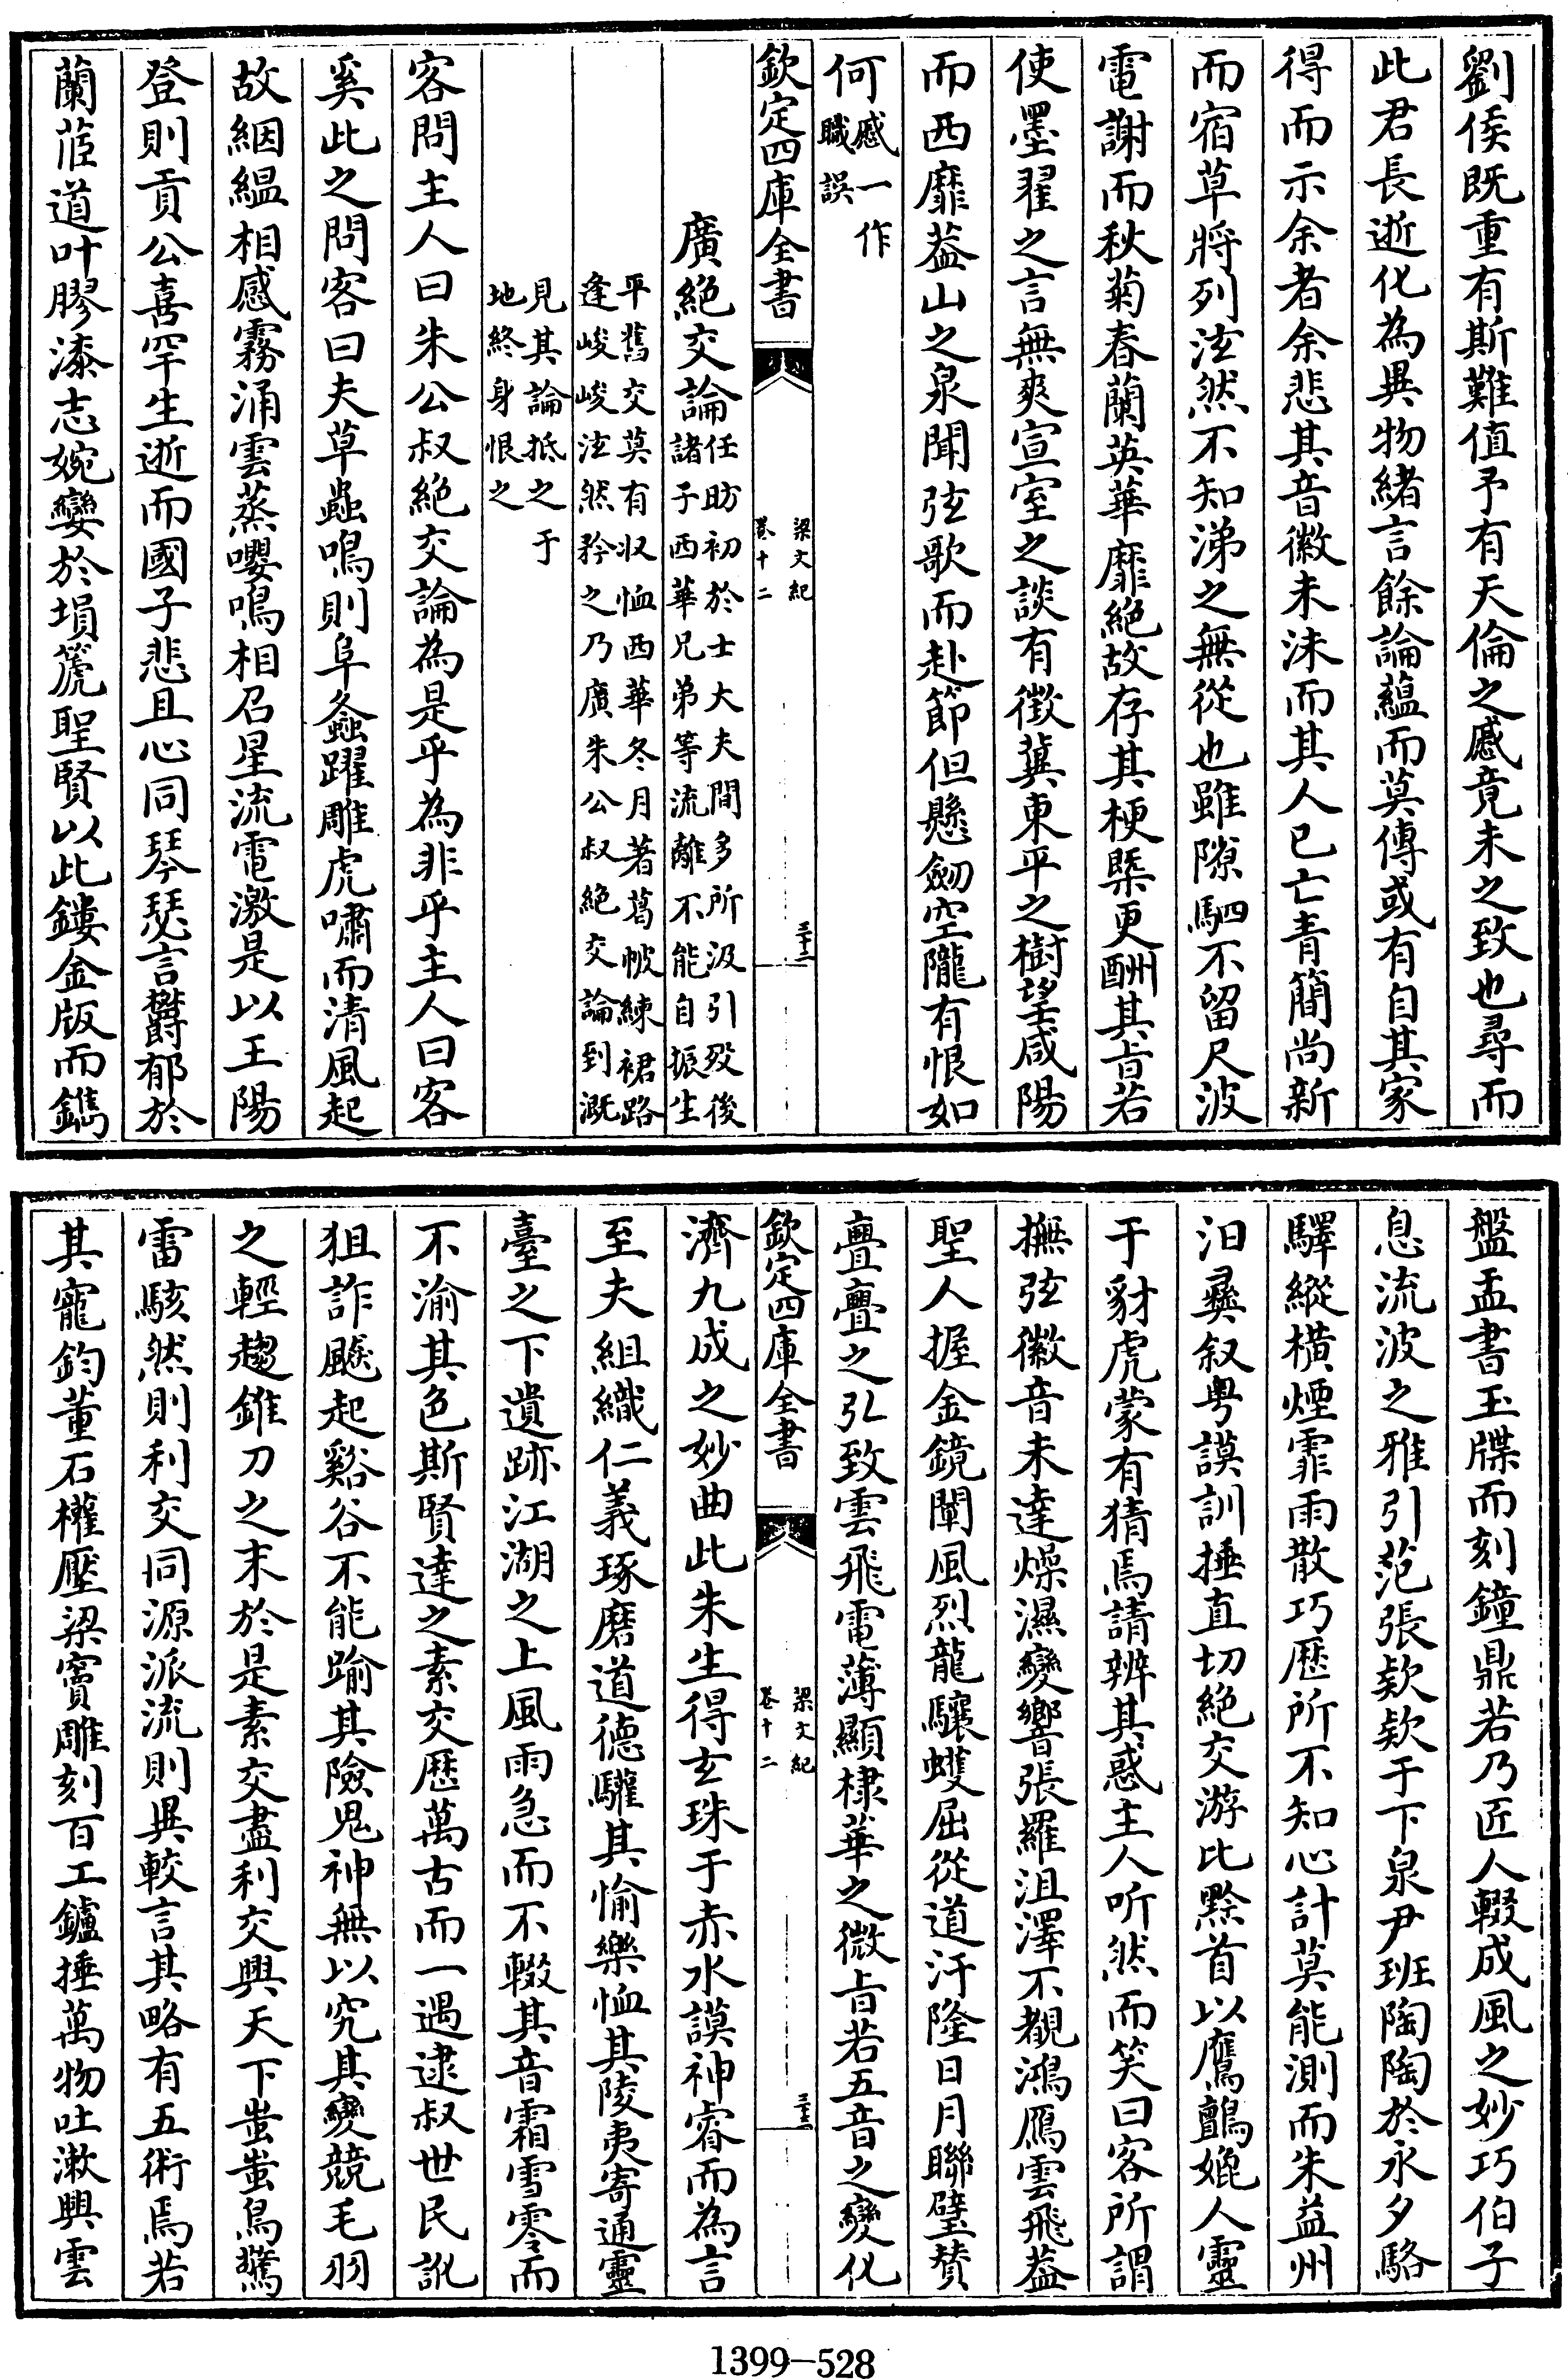 劉侯既重有斯難值予有天倫之慼竟未之致也尋而
此君長逝化為異物緒言餘論蘊而莫傳或有自其家
得而示余者余悲其音徽未沬而其人已亡青簡尚新
而宿草將列泫然不知涕之無從也雖隙駟不留尺波
電謝而秋菊春蘭英華靡絕故存其梗槩更酬其㫖若
使墨翟之言無爽宣室之談有徵冀東平之樹望咸陽
而西靡葢山之泉聞弦歌而赴節但懸劒空隴有恨如
何慼一作
職誤
欽定四庫全書
梁文紀
卷十二
三十三
廣絕交論任昉初於士大夫間多所汲引歿後
諸子西華兄弟等流離不能自振生
平舊交莫有収恤西華冬月著葛帔練裙路
逢峻峻泫然矜之乃廣朱公叔絕交論到溉
見其論抵之于
地終身恨之
客問主人曰朱公叔絕交論為是乎為非乎主人曰客
奚此之問客曰夫草蟲鳴則阜螽躍雕虎嘯而清風起
故絪縕相感霧涌雲蒸嚶鳴相召星流電激是以王陽
登則貢公喜罕生逝而國子悲且心同琴瑟言欝郁於
蘭茝道叶膠漆志婉孌於塤篪聖賢以此鏤金版而鐫
盤盂書玉牒而刻鐘鼎若乃匠人輟成風之妙巧伯子
息流波之雅引范張欵欵于下泉尹班陶陶於永夕駱
驛縱橫煙霏雨散巧歷所不知心計莫能測而朱益州
汨彞叙粵謨訓捶直切絕交游比黔首以鷹鸇媲人靈
于豺虎蒙有猜焉請辨其惑主人听然而笑曰客所謂
撫弦徽音未達燥濕變響張羅沮澤不覩鴻鴈雲飛葢
聖人握金鏡闡風烈龍驤蠖屈從道汙隆日月聯璧賛
亹亹之弘致雲飛電薄顯棣華之微㫖若五音之變化
欽定四庫全書
梁文紀
卷十二
三十三
濟九成之妙曲此朱生得玄珠于赤水謨神睿而為言
至夫組織仁義琢磨道德驩其愉樂恤其陵夷寄通靈
臺之下遺跡江湖之上風雨急而不輟其音霜雪零而
不渝其色斯賢達之素交歷萬古而一遇逮叔世民訛
狙詐飈起谿谷不能踰其險鬼神無以究其變競毛羽
之輕趨錐刀之末於是素交盡利交興天下蚩蚩鳥驚
雷駭然則利交同源派流則異較言其略有五術焉若
其寵鈞董石權壓梁竇雕刻百工鑪捶萬物吐漱興雲
1399—528